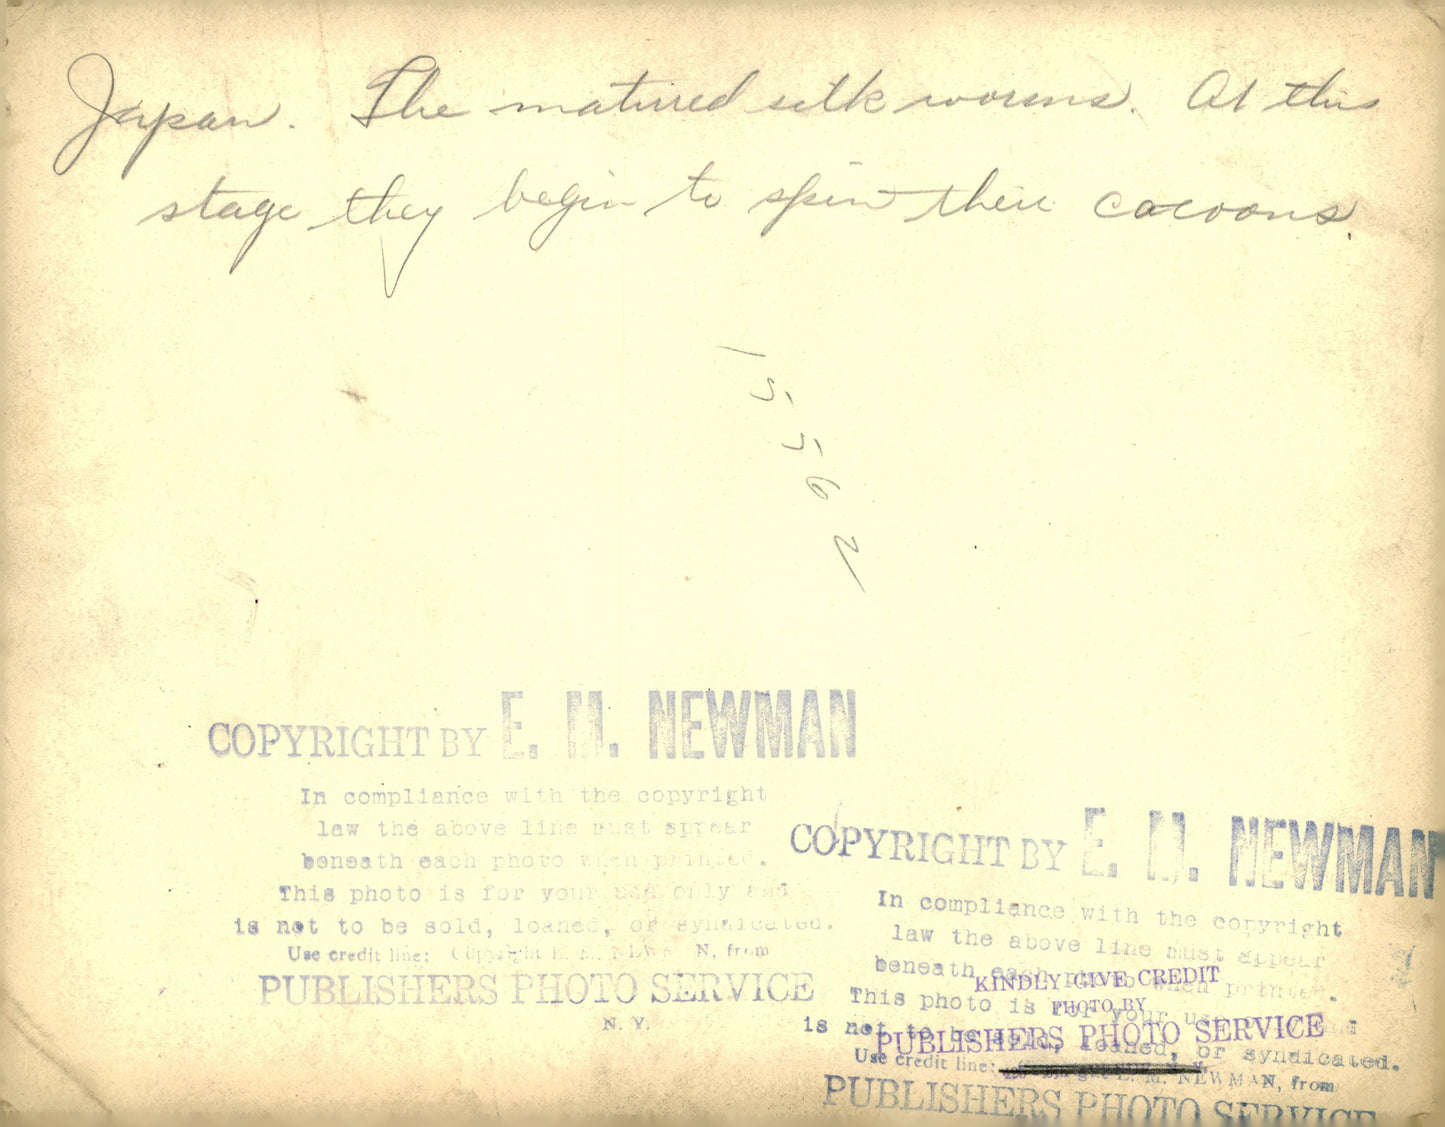 Japan. The matured silk worms. At this
stage they begin to spin their cocoons.
15562
COPYRIGHT BY E. M. NEWMAN
In compliance with the copyright
law the above line must appear
beneath each photo when printed.
This photo is for your use only and
is not to be sold, loaned, or syndicated.
Use credit line: Copyright E. M. NEWMAN, from
PUBLISHERS PHOTO SERVICE
N. Y.
COPYRIGHT BY E. M. NEWMAN
In compliance with the copyright
law the above line must appear
beneath each photo when printed.
KINDLY GIVE CREDIT
This photo is for your use
PHOTO BY
is not to be sold, loaned, or syndicated.
PUBLISHERS PHOTO SERVICE
Use credit line: Copyright E. M. NEWMAN, from
PUBLISHERS PHOTO SERVICE